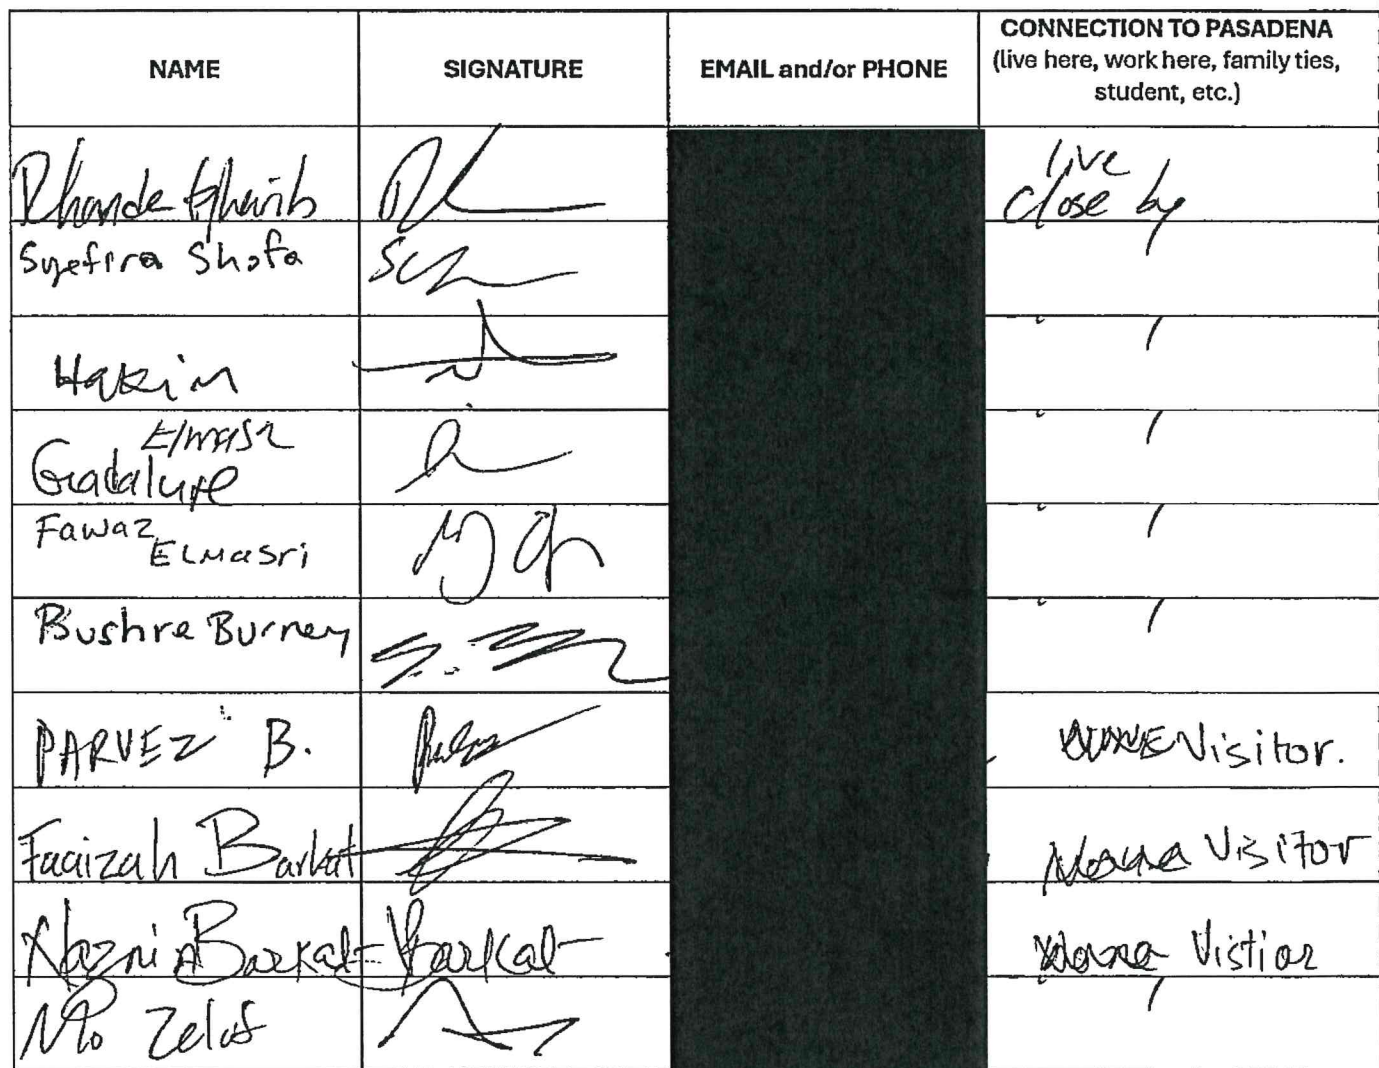 NAME SIGNATURE EMAIL and/or PHONE CONNECTION TO PASADENA
(live here, work here, family ties,
student, etc.)
live
close by
Syefira Shofa
Hakim
Elmasr
Guadalupe
Fawaz
ELMasri
Bushra Burney
PARVEZ B. Visitor.
Faaizah Barkat Visitor
Naznin Barkat Vistior
Mo Zelof